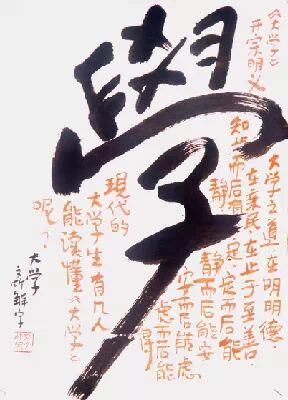 學
《大学》
开宗明义
大学之道在明明德·
在亲民·在止于至善·
知止而后有定·定而后能
静·静而后能安
安而后能虑
虑而后能得
現代的
大学生有几人
能读懂《大学》
呢？
大学
新解字